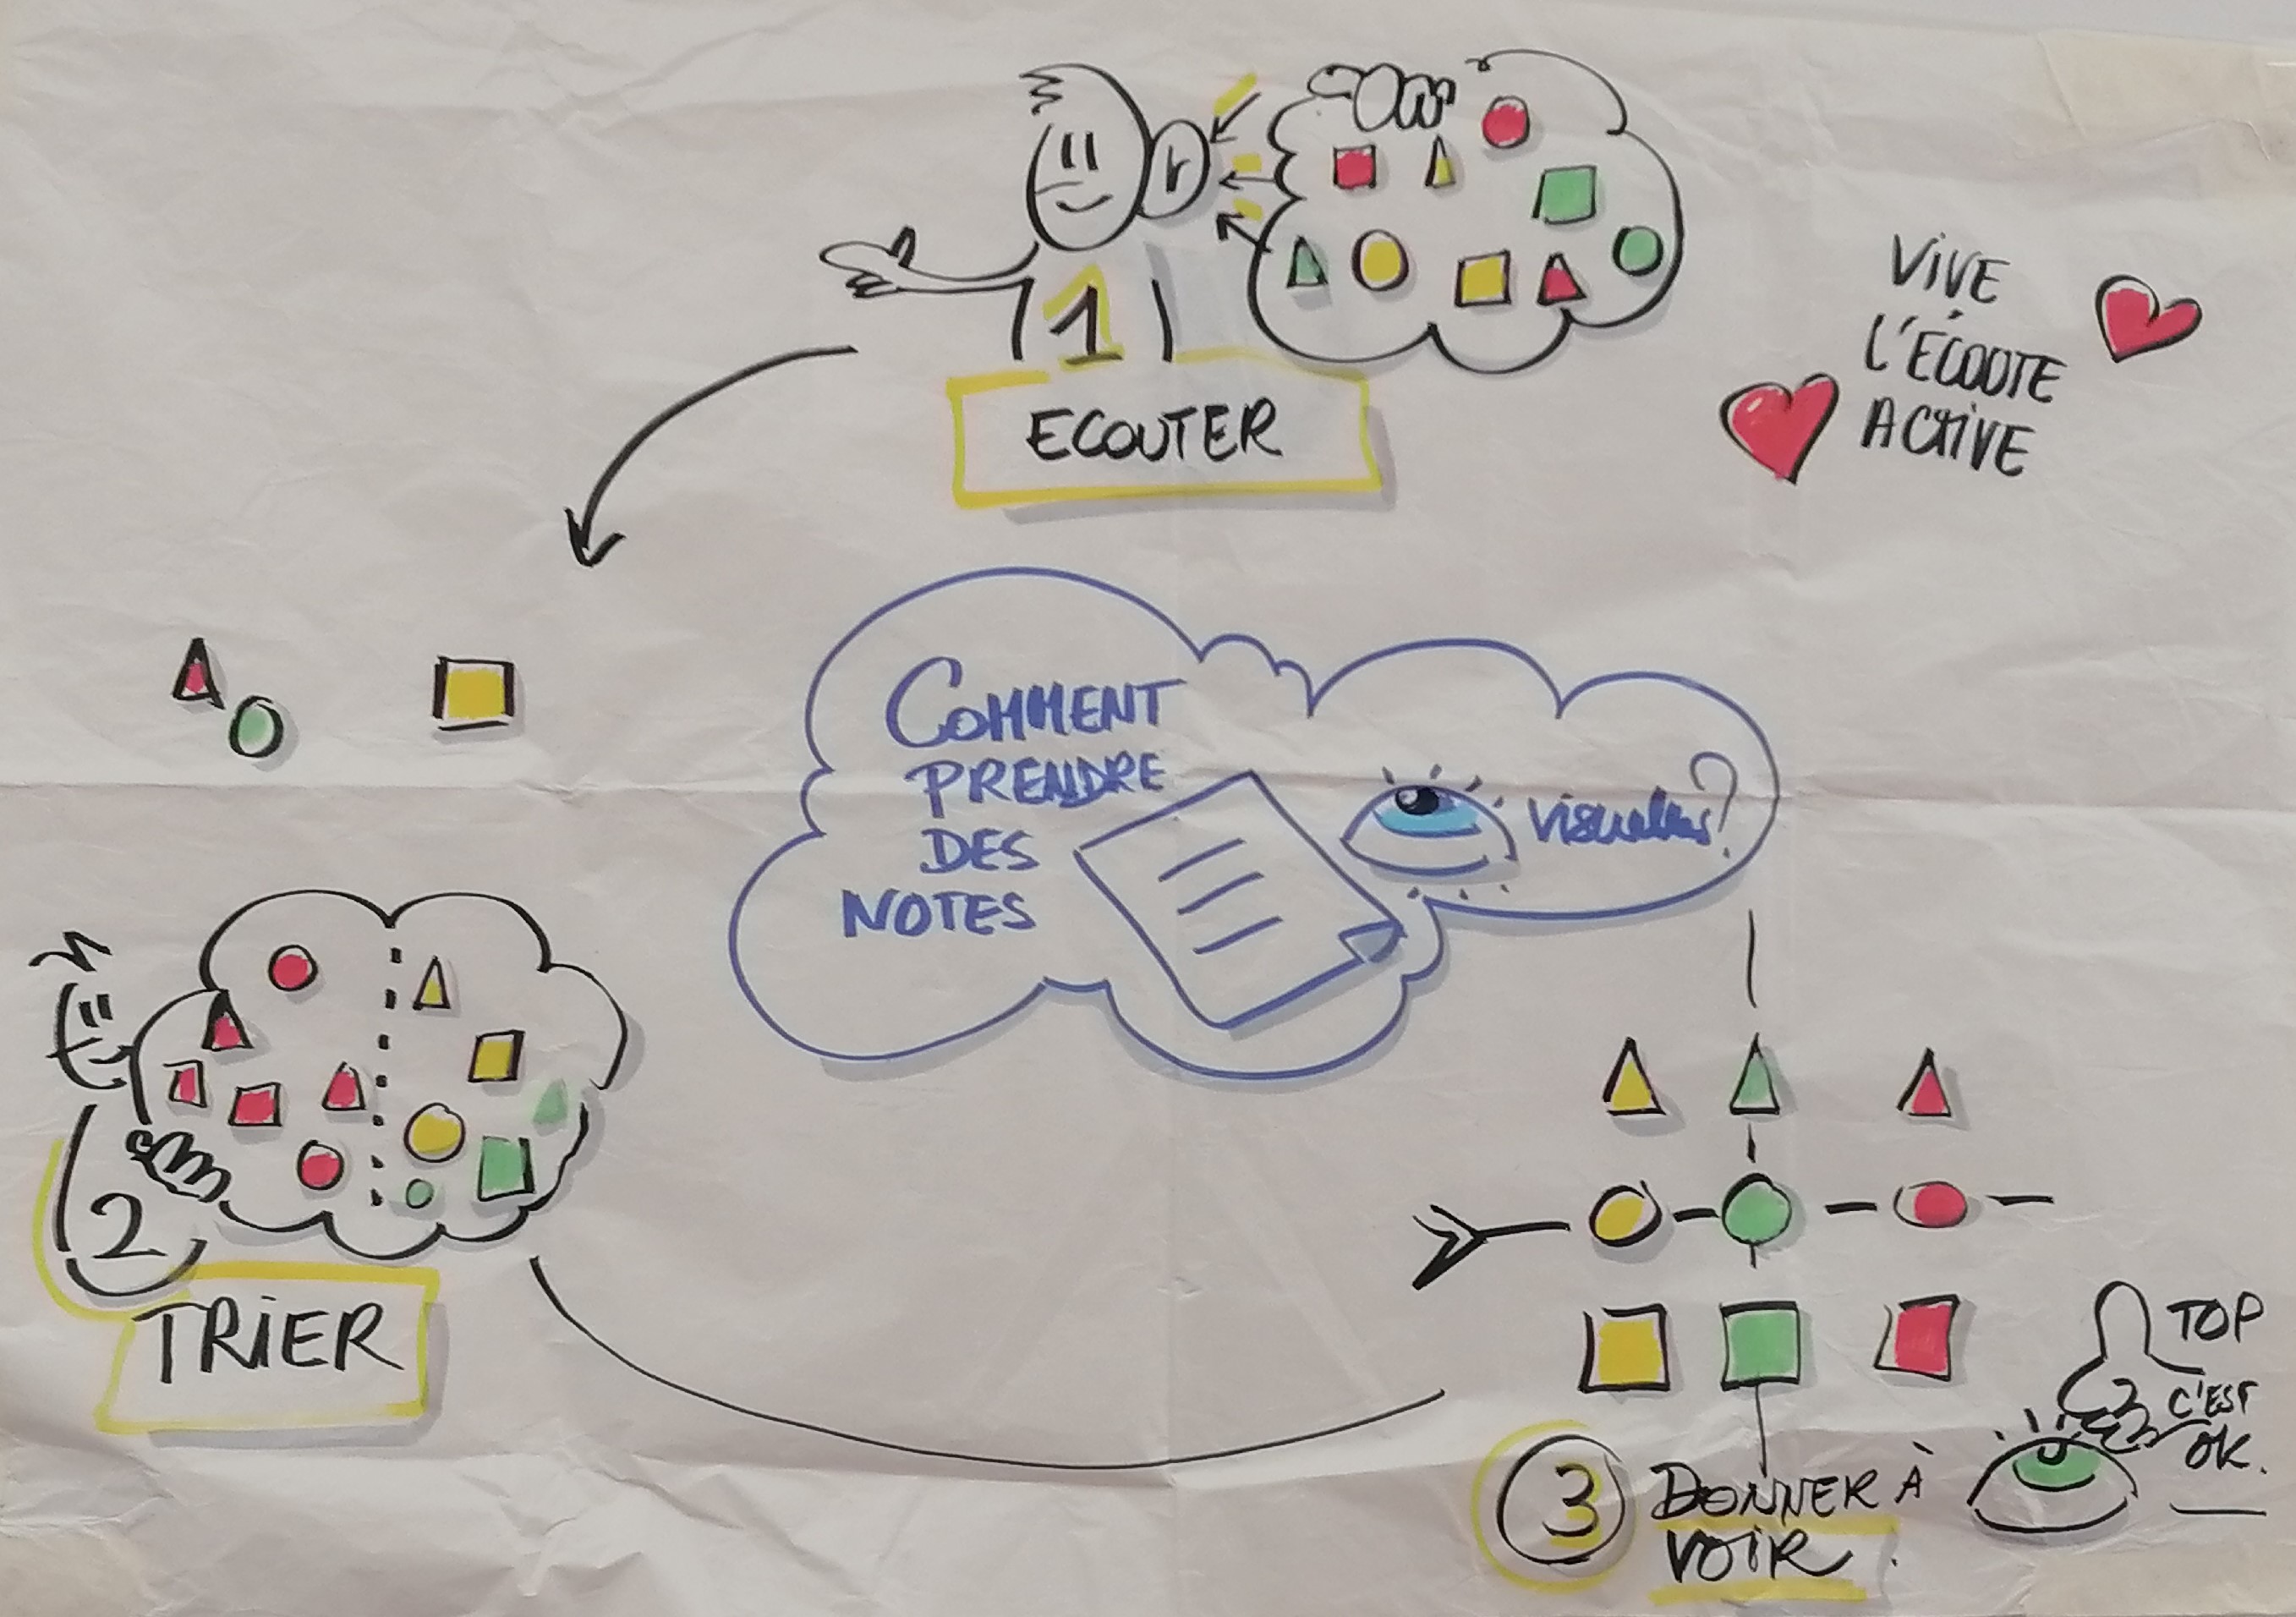 1
ECOUTER
VIVE
L'ÉCOUTE
ACTIVE
COMMENT
PRENDRE
DES
NOTES
visuelles?
2
TRIER
3
DONNER À
VOIR.
TOP
C'EST
OK.